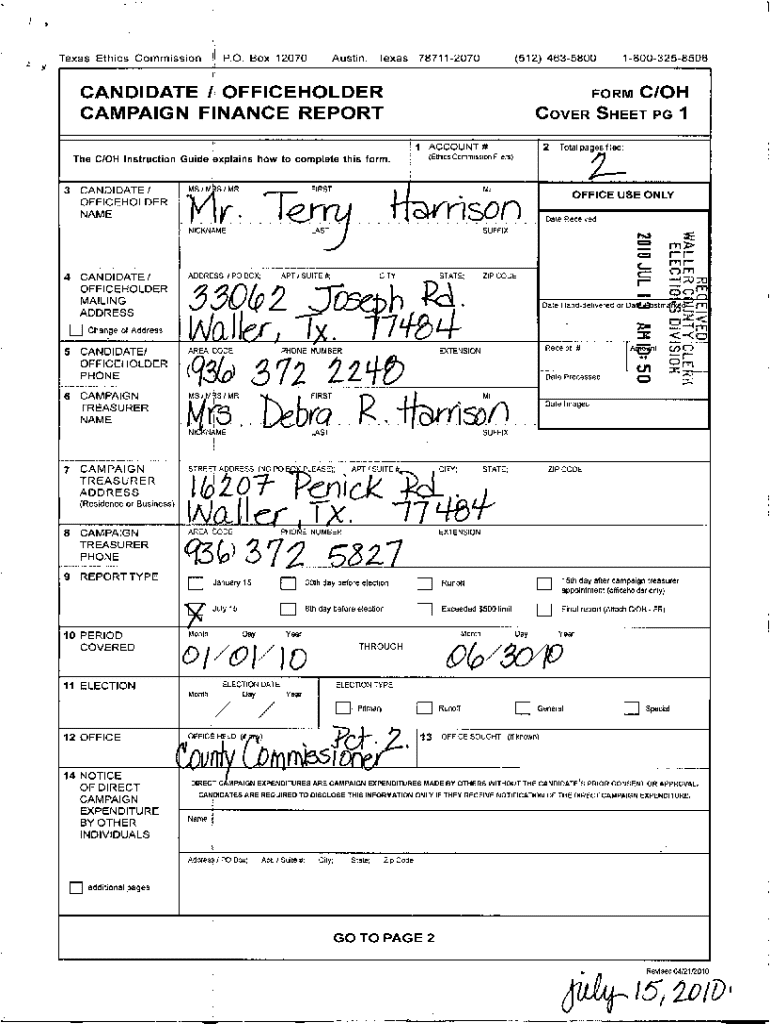 Texas Ethics Commission P.O. Box 12070 Austin, Texas 78711-2070 (512) 463-5800 1-800-325-8506
CANDIDATE / OFFICEHOLDER
CAMPAIGN FINANCE REPORT
FORM C/OH
COVER SHEET PG 1
The C/OH Instruction Guide explains how to complete this form.
1 ACCOUNT #
(Ethics Commission Filers)
2 Total pages filed:
2
3 CANDIDATE /
OFFICEHOLDER
NAME
MS / MRS / MR FIRST MI
Mr. Terry Harrison
NICKNAME LAST SUFFIX
OFFICE USE ONLY
Date Received
RECEIVED
WALLER COUNTY CLERK
ELECTIONS DIVISION
2010 JUL AM 50
4 CANDIDATE /
OFFICEHOLDER
MAILING
ADDRESS
Change of Address
ADDRESS / PO BOX; APT / SUITE #; CITY STATE; ZIP CODE
33062 Joseph Rd.
Waller, Tx. 77484
Date Hand-delivered or Date Postmarked
5 CANDIDATE/
OFFICEHOLDER
PHONE
AREA CODE PHONE NUMBER EXTENSION
(936) 372 2248
Receipt # Amount
Date Processed
6 CAMPAIGN
TREASURER
NAME
MS / MRS / MR FIRST MI
Mrs Debra R. Harrison
NICKNAME LAST SUFFIX
Date Imaged
7 CAMPAIGN
TREASURER
ADDRESS
(Residence or Business)
STREET ADDRESS (NO PO BOX PLEASE); APT / SUITE #; CITY; STATE; ZIP CODE
16207 Penick Rd.
Waller, Tx. 77484
8 CAMPAIGN
TREASURER
PHONE
AREA CODE PHONE NUMBER EXTENSION
(936) 372 5827
9 REPORT TYPE
January 15 30th day before election Runoff 15th day after campaign treasurer
appointment (officeholder only)
X July 15 8th day before election Exceeded $500 limit Final report (Attach C/OH - FR)
10 PERIOD
COVERED
Month Day Year
01/01/10
THROUGH
Month Day Year
06/30/10
11 ELECTION
ELECTION DATE
Month Day Year
/ /
ELECTION TYPE
Primary Runoff General Special
12 OFFICE
OFFICE HELD (if any)
Pct. 2.
County Commissioner
13 OFFICE SOUGHT (if known)
14 NOTICE
OF DIRECT
CAMPAIGN
EXPENDITURE
BY OTHER
INDIVIDUALS
additional pages
DIRECT CAMPAIGN EXPENDITURES ARE CAMPAIGN EXPENDITURES MADE BY OTHERS WITHOUT THE CANDIDATE'S PRIOR CONSENT OR APPROVAL.
CANDIDATES ARE REQUIRED TO DISCLOSE THIS INFORMATION ONLY IF THEY RECEIVE NOTIFICATION OF THE DIRECT CAMPAIGN EXPENDITURE.
Name
Address / PO Box; Apt. / Suite #; City; State; Zip Code
GO TO PAGE 2
Revised 04/21/2010
July 15, 2010